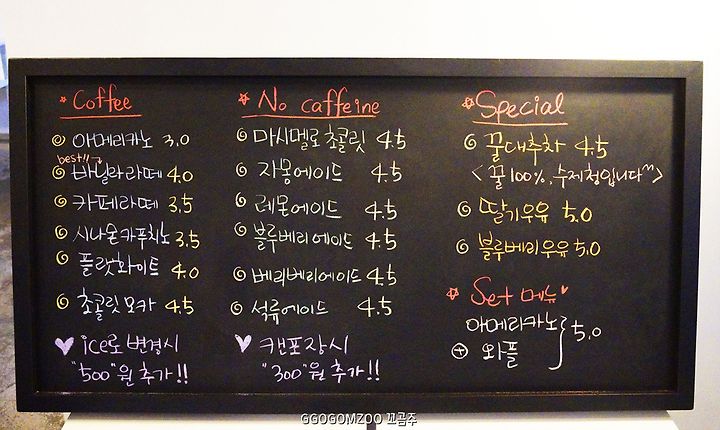 Coffee
아메리카노 3.0
best!!
바닐라라떼 4.0
카페라떼 3.5
시나몬카푸치노 3.5
플랫화이트 4.0
초콜릿모카 4.5
ice로 변경시
"500"원 추가!!
No caffeine
마시멜로 초콜릿 4.5
자몽에이드 4.5
레몬에이드 4.5
블루베리에이드 4.5
베리베리에이드 4.5
석류에이드 4.5
캔포장시
"300"원 추가!!
Special
꿀대추차 4.5
<꿀100%, 수제청입니다^^>
딸기우유 5.0
블루베리우유 5.0
Set 메뉴
아메리카노
+ 와플
5.0
GGOGOMZOO 꼬곰주